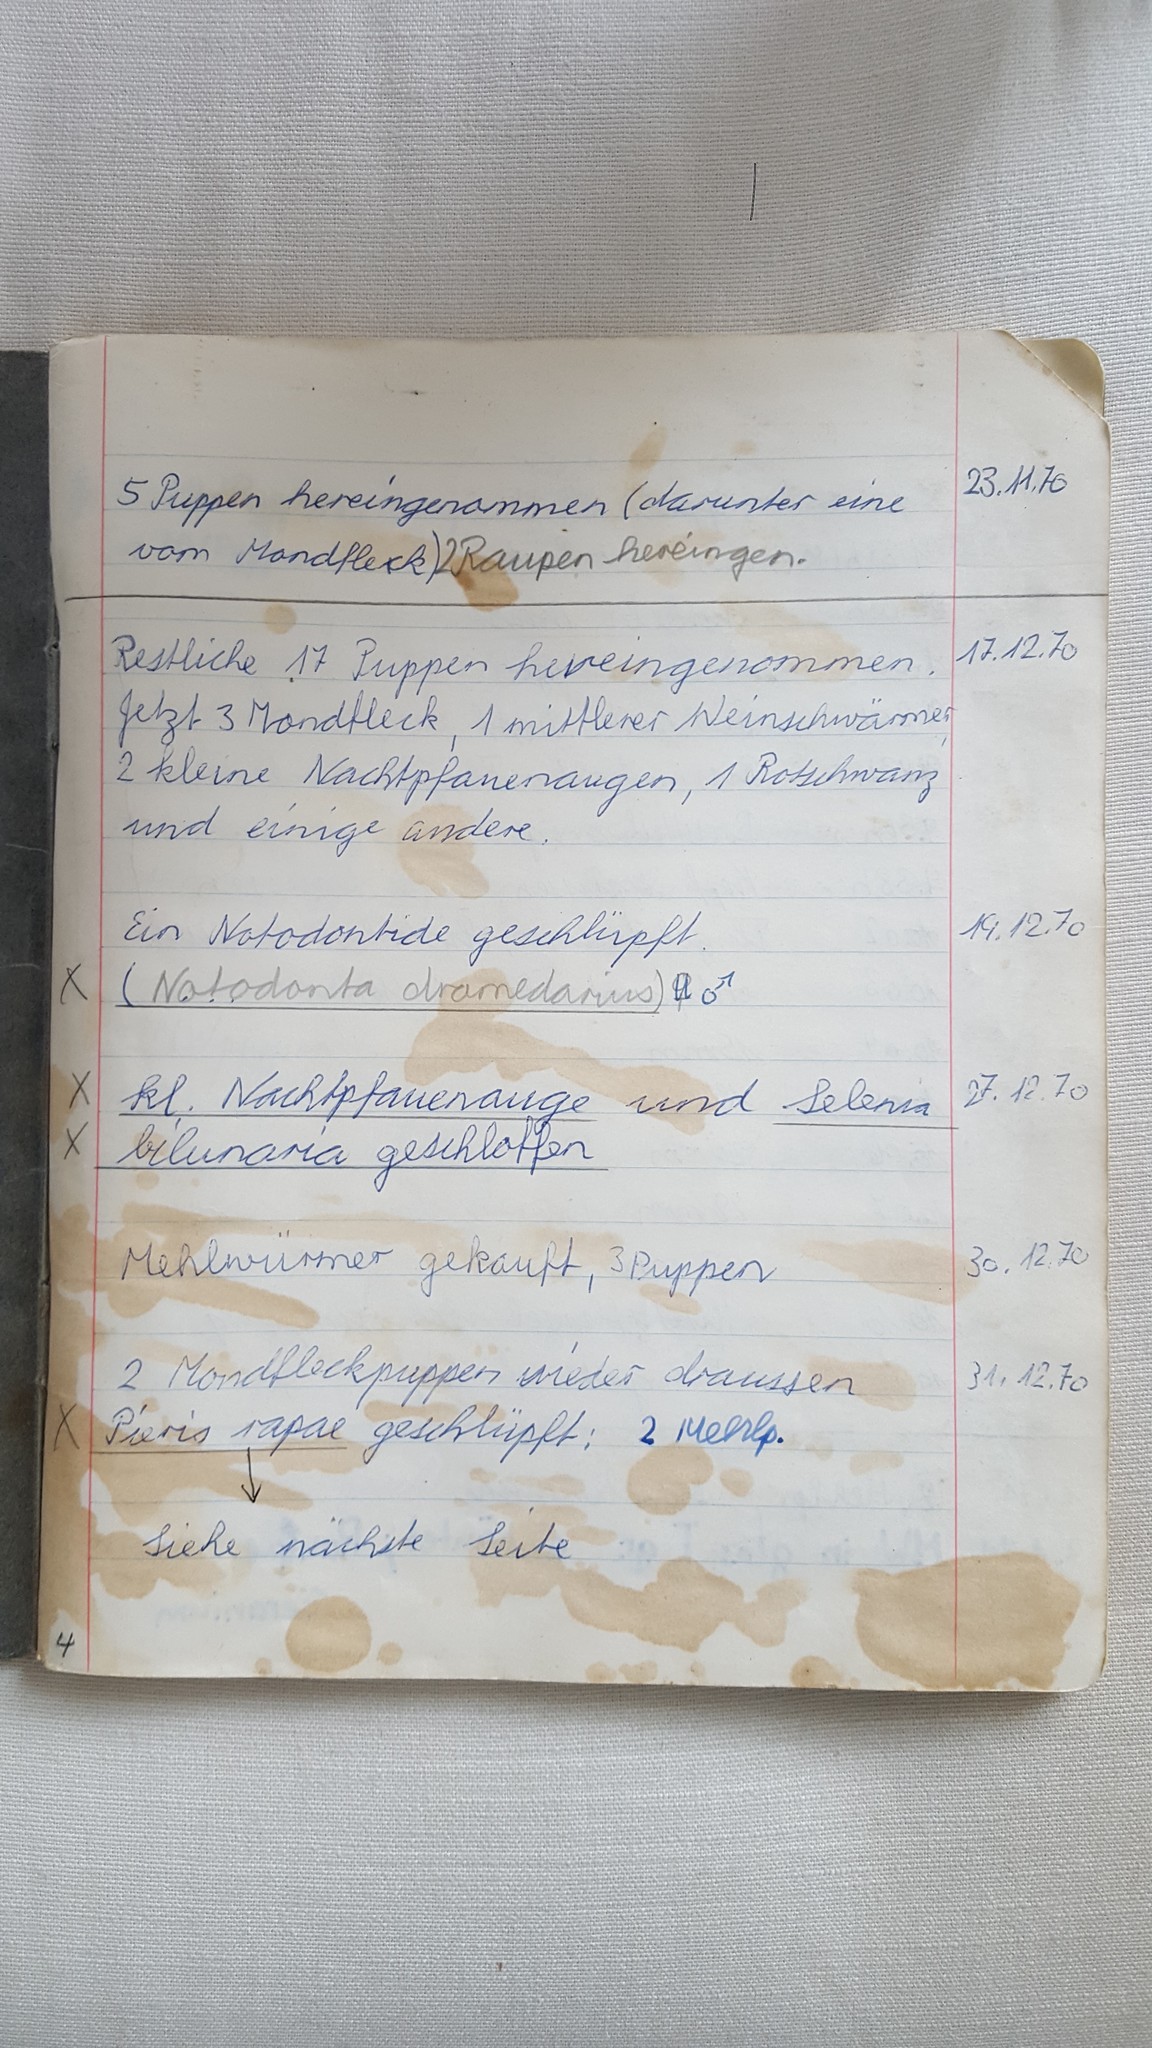 5 Puppen hereingenommen (darunter eine 23.11.70
vom Mondfleck) 2 Raupen hereingen.
Restliche 17 Puppen hereingenommen. 17.12.70
Jetzt 3 Mondfleck, 1 mittlerer Weinschwärmer,
2 kleine Nachtpfauenaugen, 1 Rotschwanz
und einige andere.
Ein Notodontide geschlüpft. 19.12.70
X (Notodonta dromedarius) ♂
X kl. Nachtpfauenauge und Selenia 27.12.70
X bilunaria geschloffen
Mehlwürmer gekauft, 3 Puppen 30.12.70
2 Mondfleckpuppen wieder draussen 31.12.70
X Pieris rapae geschlüpft; 2 Mehlp.
↓
siehe nächste Seite
4